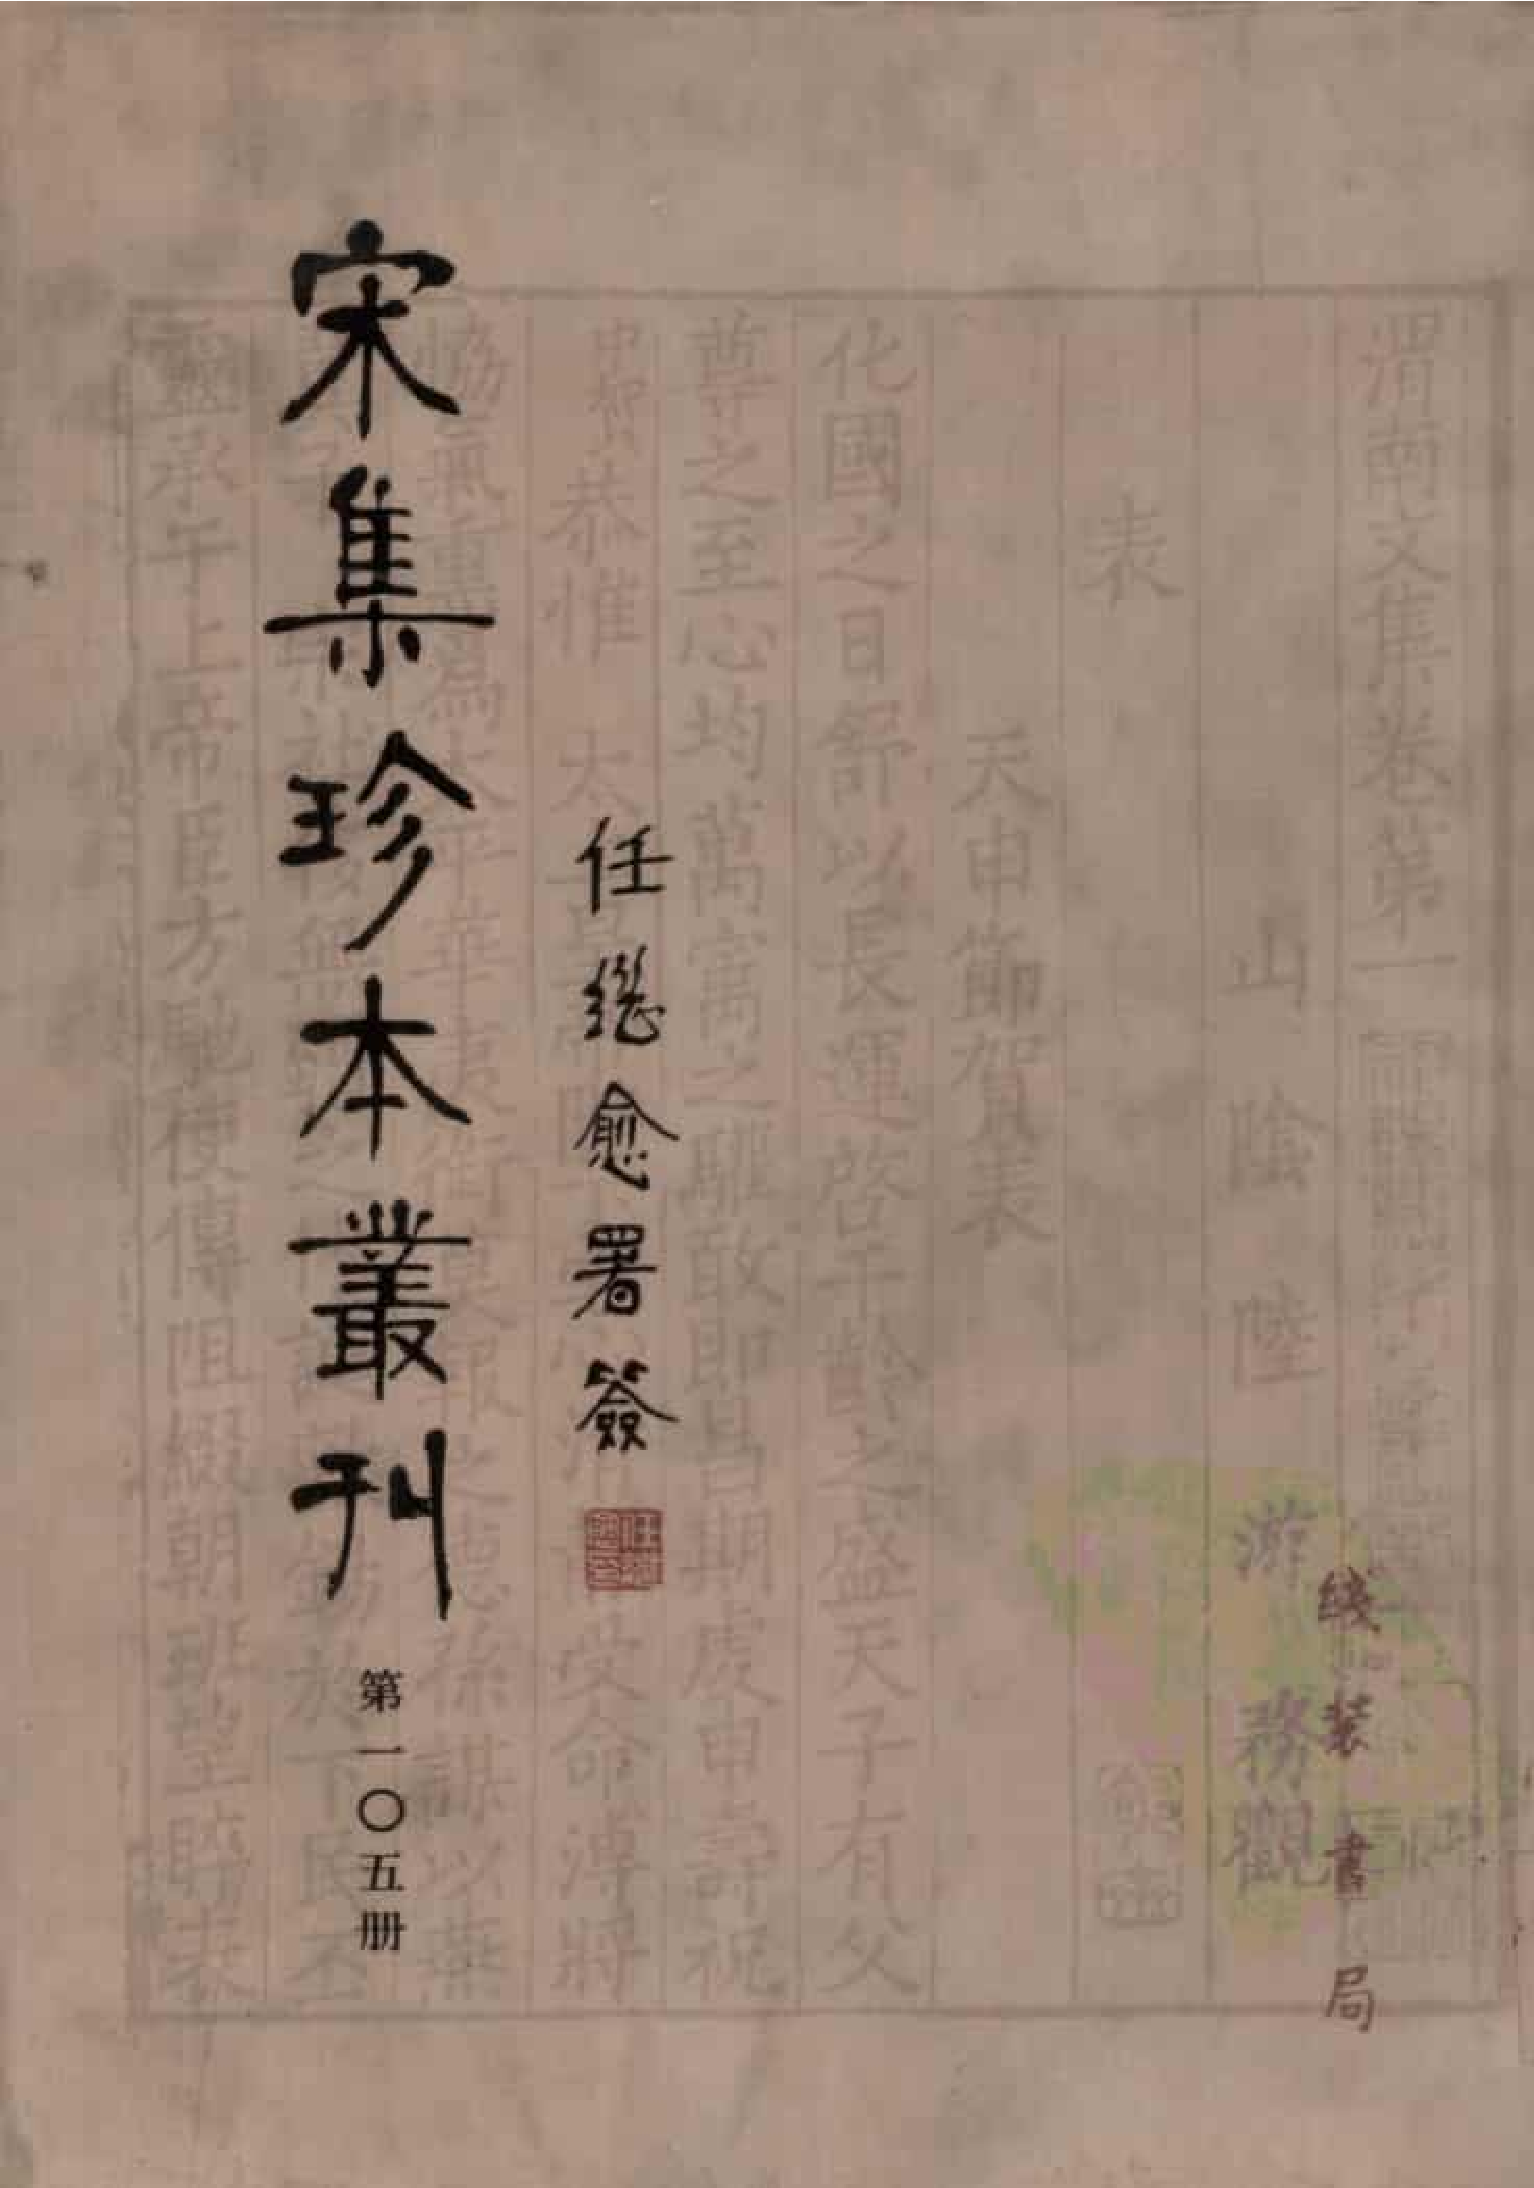 渭南文集卷第一
山陰陸游務觀
表
天申節賀表
化國之日舒以長運啓千齡之盛天子有父
尊之至心均萬寓之驩敢即昌期虔申壽祝
中賀恭惟 太 受命溥將
靈承于上帝臣方馳使傳阻綴朝班望睟表
綫装書局
任继愈署簽
宋集珍本叢刊
第一〇五册